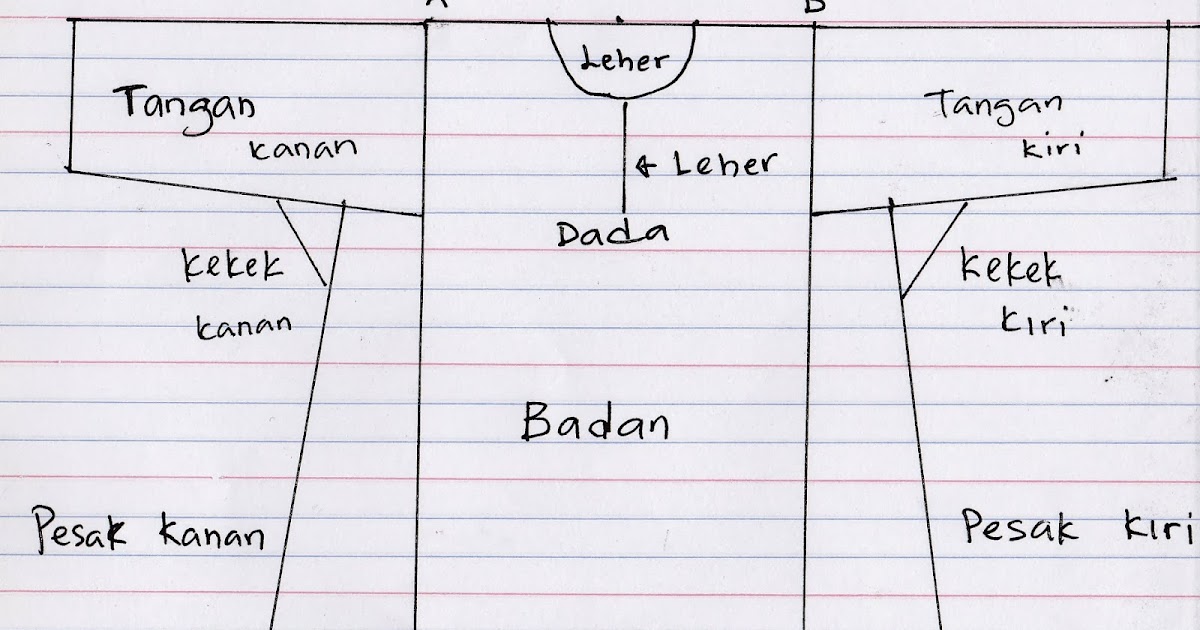 A B
Leher
Tangan
kanan
Tangan
kiri
Leher
Dada
Kekek
kanan
Kekek
kiri
Badan
Pesak kanan
Pesak kiri